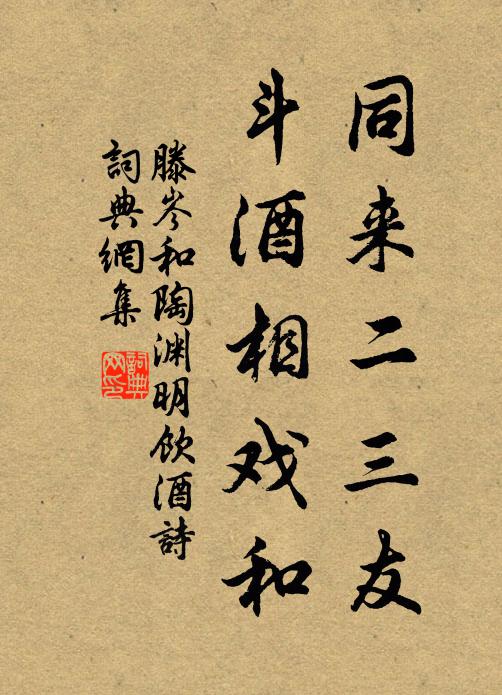 同来二三友
斗酒相戏和
滕岑和陶渊明饮酒詩
詞典網集
詞典
网印